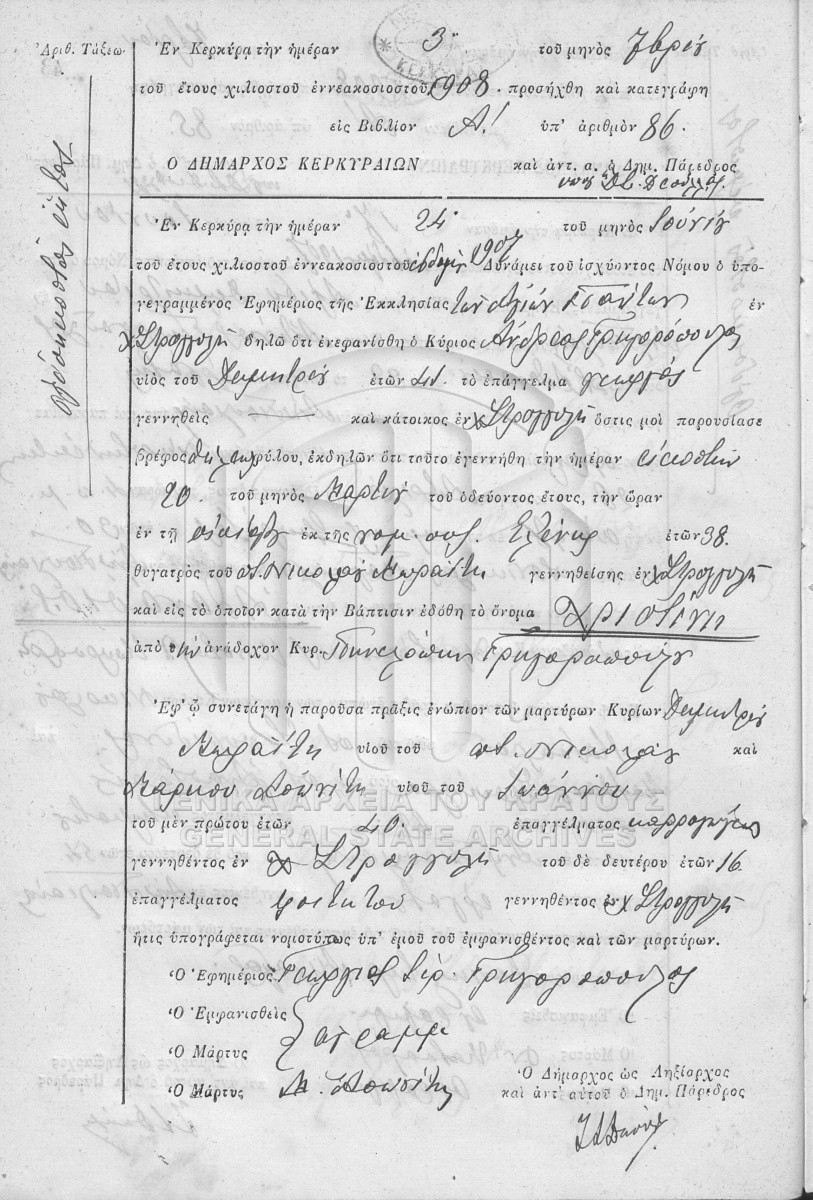 Ἀριθ. Τάξεω.
ὀγδοηκοστὸν ἕκτον
Ἐν Κερκύρᾳ τὴν ἡμέραν 3 τοῦ μηνὸς
τοῦ ἔτους χιλιοστοῦ ἐννεακοσιοστοῦ 1908. προσήχθη καὶ κατεγράφη
εἰς Βιβλίον Α! ὑπ' ἀριθμὸν 86.
Ο ΔΗΜΑΡΧΟΣ ΚΕΡΚΥΡΑΙΩΝ καὶ ἀντ. α. ὁ Δημ. Πάρεδρος
Ἐν Κερκύρᾳ τὴν ἡμέραν 24 τοῦ μηνὸς Ἰουνίου
τοῦ ἔτους χιλιοστοῦ ἐννεακοσιοστοῦ 1907 Δυνάμει τοῦ ἰσχύοντος Νόμου ὁ ὑπο-
γεγραμμένος Ἐφημέριος τῆς Ἐκκλησίας τῶν Ἁγίων Πάντων ἐν
χ Στρογγυλῇ δηλῶ ὅτι ἐνεφανίσθη ὁ Κύριος Ἀνδρέας Γρηγορόπουλος
υἱὸς τοῦ Δημητρίου ἐτῶν τὸ ἐπάγγελμα γεωργὸς
γεννηθεὶς — καὶ κάτοικος ἐν χ Στρογγυλῇ ὅστις μοὶ παρουσίασε
βρέφος θήλεως φύλου, ἐκδηλῶν ὅτι τοῦτο ἐγεννήθη τὴν ἡμέραν εἰκοστὴν
20. τοῦ μηνὸς Μαρτίου τοῦ ὁδεύοντος ἔτους, τὴν ὥραν
ἐν τῇ οἰκίᾳ ἐκ τῆς νομ. συζ. Ἑλένης ἐτῶν 38.
θυγατρὸς τοῦ Νικολάου Μωραΐτη γεννηθείσης ἐν χ Στρογγυλῇ
καὶ εἰς τὸ ὁποῖον κατὰ τὴν Βάπτισιν ἐδόθη τὸ ὄνομα Χριστίνη
ἀπὸ τὴν ἀνάδοχον Κυρ. Πηνελόπην Γρηγοροπούλου
Ἐφ' ᾧ συνετάγη ἡ παροῦσα πρᾶξις ἐνώπιον τῶν μαρτύρων Κυρίων Δημητρίου
Μωραΐτη υἱοῦ τοῦ Νικολάου καὶ
Μάρκου υἱοῦ τοῦ Ἰωάννου
ΓΕΝΙΚΑ ΑΡΧΕΙΑ ΤΟΥ ΚΡΑΤΟΥΣ
τοῦ μὲν πρώτου ἐτῶν 40. ἐπαγγέλματος
GENERAL STATE ARCHIVES
γεννηθέντος ἐν χ Στρογγυλῇ τοῦ δὲ δευτέρου ἐτῶν 16
ἐπαγγέλματος φοιτητοῦ γεννηθέντος ἐν χ Στρογγυλῇ
ἥτις ὑπογράφεται νομοτύπως ὑπ' ἐμοῦ τοῦ ἐμφανισθέντος καὶ τῶν μαρτύρων.
Ὁ Ἐφημέριος Γεώργιος Ἱερ. Γρηγορόπουλος
Ὁ Ἐμφανισθεὶς
ἀγράμμ
Ὁ Μάρτυς
Ὁ Μάρτυς Μ.
Ὁ Δήμαρχος ὡς Ληξίαρχος
καὶ ἀντ' αὐτοῦ ὁ Δημ. Πάρεδρος